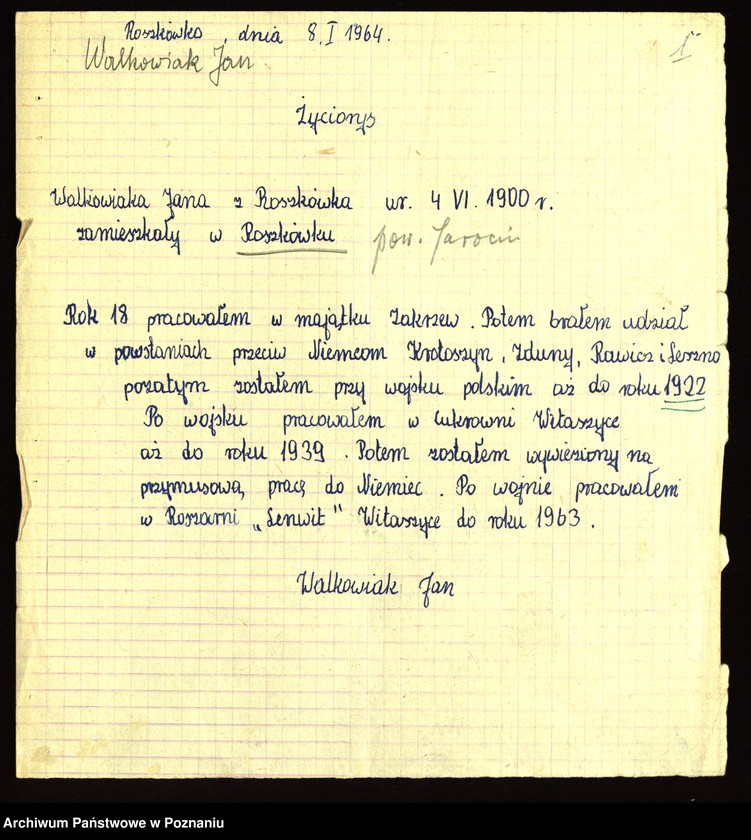 Roszkówko, dnia 8.I 1964.
Walkowiak Jan
1
Życiorys
Walkowiaka Jana z Roszkówka ur. 4 VI. 1900 r.
zamieszkały w Roszkówku pow. Jarocin
Rok 18 pracowałem w majątku Zakrzew. Potem brałem udział
w powstaniach przeciw Niemcom Krotoszyn, Zduny, Rawicz i Leszno
pozatym zostałem przy wojsku polskim aż do roku 1922
Po wojsku pracowałem w Cukrowni Witaszyce
aż do roku 1939. Potem zostałem wywieziony na
przymusową pracę do Niemiec. Po wojnie pracowałem
w Roszarni „Lenwit" Witaszyce do roku 1963.
Walkowiak Jan
Archiwum Państwowe w Poznaniu